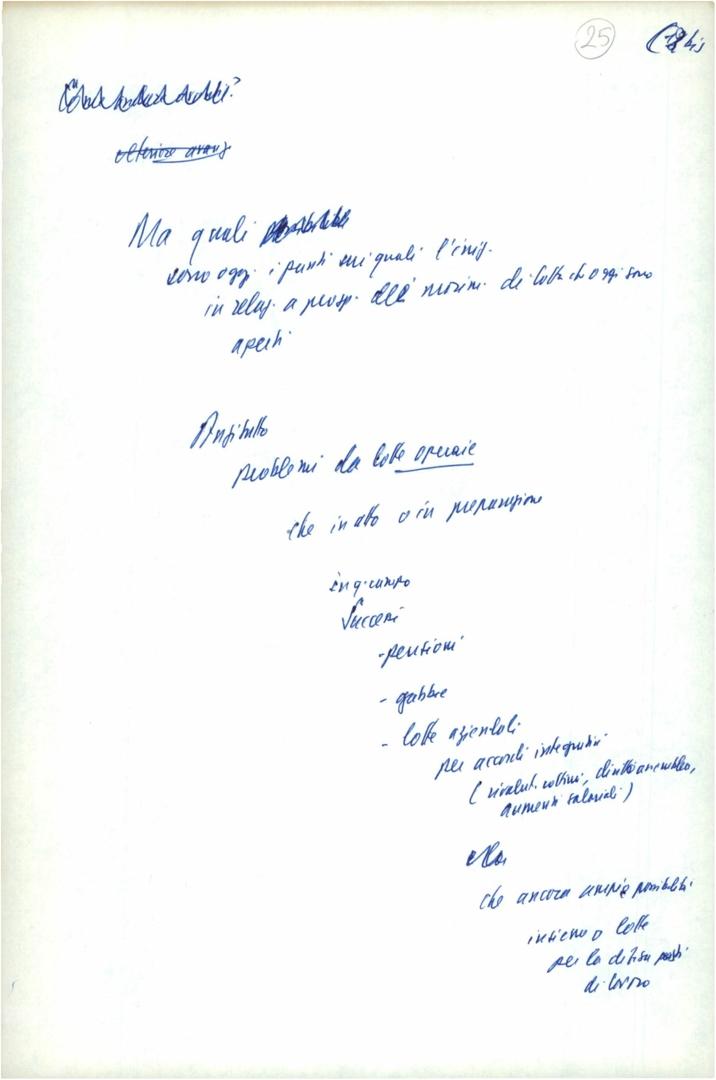 25
bis
Ma quali
sono oggi i punti sui quali l'iniz.
in relaz. a prosp. della movim. di lotta che oggi sono
aperti
Anzitutto
problemi da lotte operaie
che in atto o in preparazione
in q. campo
Successi
- pensioni
- gabbie
- lotte aziendali
per accordi integrativi
(rivalut. cottimi, diritto assemblea,
aumenti salariali)
Ma
che ancora ampie possibilità
insieme a lotte
per la difesa posti
di lavoro